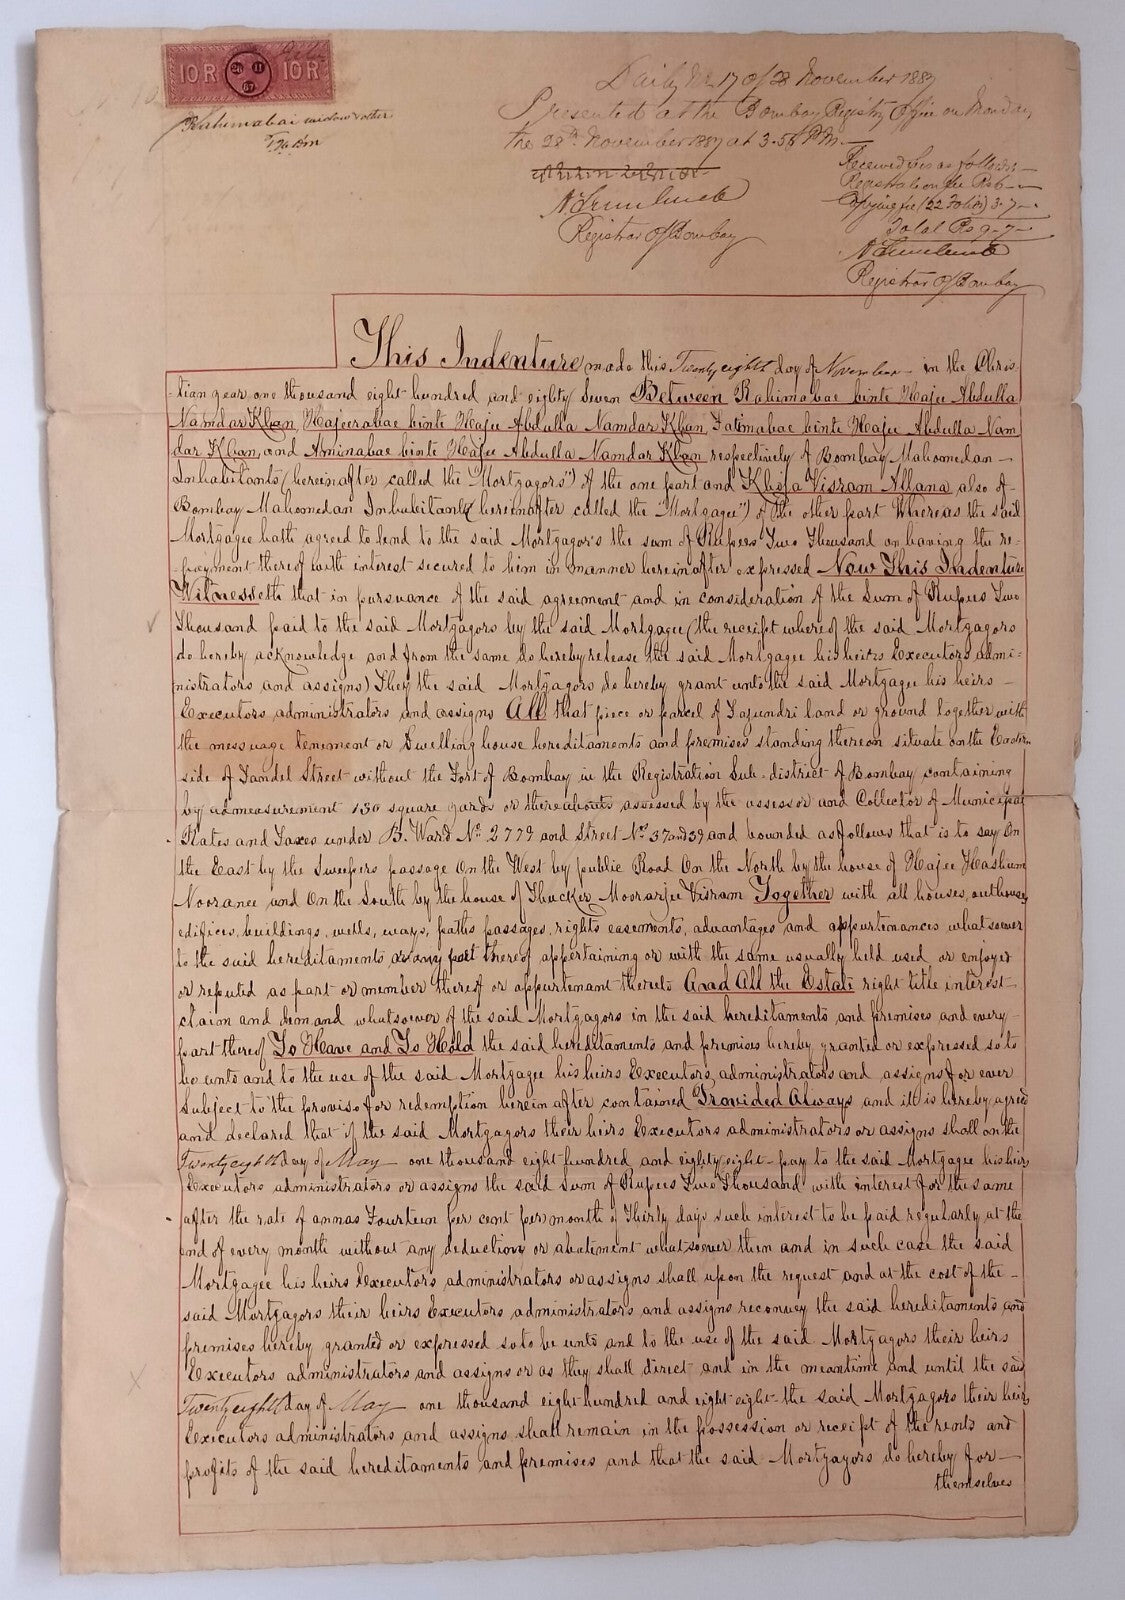 10 R 10 R
28 11
87
Rahimabai widow & other
Daily No 17 of 28 November 1887
Presented at the Bombay Registry Office on Monday
the 28th November 1887 at 3.56 P.M.
Registrar of Bombay
Received fees as follows:-
Registration fee Rs 6-"-
Copying fee (22 folios) 3-7-"
Total Rs 9-7-"
Registrar of Bombay
This Indenture made this Twenty eighth day of November in the Chris-
-tian year one thousand eight hundred and eighty seven Between Rahimabae binte Hajee Abdulla
Namdar Khan, Hajeerabae binte Hajee Abdulla Namdar Khan, Fatimabae binte Hajee Abdulla Nam
dar Khan, and Aminabae binte Hajee Abdulla Namdar Khan respectively of Bombay Mahomedan
Inhabitants (hereinafter called the "Mortgagors") of the one part and Khoja Visram Allana also of
Bombay Mahomedan Inhabitant (hereinafter called the "Mortgagee") of the other part Whereas the said
Mortgagee hath agreed to lend to the said Mortgagors the sum of Rupees Two Thousand on having the re-
-payment thereof with interest secured to him in manner hereinafter expressed Now This Indenture
Witnesseth that in pursuance of the said agreement and in consideration of the Sum of Rupees Two
Thousand paid to the said Mortgagors by the said Mortgagee (the receipt whereof the said Mortgagors
do hereby acknowledge and from the same do hereby release the said Mortgagee his heirs Executors admi-
nistrators and assigns) They the said Mortgagors do hereby grant unto the said Mortgagee his heirs
Executors administrators and assigns All that piece or parcel of Fazundri land or ground together with
the messuage tenement or Dwelling house hereditaments and premises standing thereon situate on the Eastern
side of Tandel Street without the Fort of Bombay in the Registration Sub-district of Bombay containing
by admeasurement 130 square yards or thereabouts assessed by the assessor and Collector of Municipal
Rates and Taxes under B. Ward No. 2779 and Street Nos 37 and 39 and bounded as follows that is to say On
the East by the Sweepers passage On the West by public Road On the North by the house of Hajee Hashum
Nooranee and On the South by the house of Thucker Moorarjee Visram Together with all houses, outhouses,
edifices, buildings, wells, ways, paths passages, rights easements, advantages and appurtenances whatsoever
to the said hereditaments or any part thereof appertaining or with the same usually held used or enjoyed
or reputed as part or member thereof or appurtenant thereto And All the Estate right title interest
claim and demand whatsoever of the said Mortgagors in the said hereditaments and premises and every
part thereof To Have and To Hold the said hereditaments and premises hereby granted or expressed so to
be unto and to the use of the said Mortgagee his heirs Executors, administrators and assigns for ever
Subject to the proviso for redemption herein after contained Provided Always and it is hereby agreed
and declared that if the said Mortgagors their heirs Executors administrators or assigns shall on the
Twenty eighth day of May one thousand eight hundred and eighty eight pay to the said Mortgagee his heirs
Executors administrators or assigns the said Sum of Rupees Two Thousand with interest for the same
after the rate of annas Fourteen per cent per month of Thirty days such interest to be paid regularly at the
end of every month without any deduction or abatement whatsoever then and in such case the said
Mortgagee his heirs Executors administrators or assigns shall upon the request and at the cost of the
said Mortgagors their heirs Executors administrators and assigns reconvey the said hereditaments and
premises hereby granted or expressed so to be unto and to the use of the said Mortgagors their heirs
Executors administrators and assigns or as they shall direct and in the meantime and until the said
Twenty eighth day of May one thousand eight hundred and eight eight the said Mortgagors their heirs
Executors administrators and assigns shall remain in the possession or receipt of the rents and
profits of the said hereditaments and premises and that the said Mortgagors do hereby for
themselves